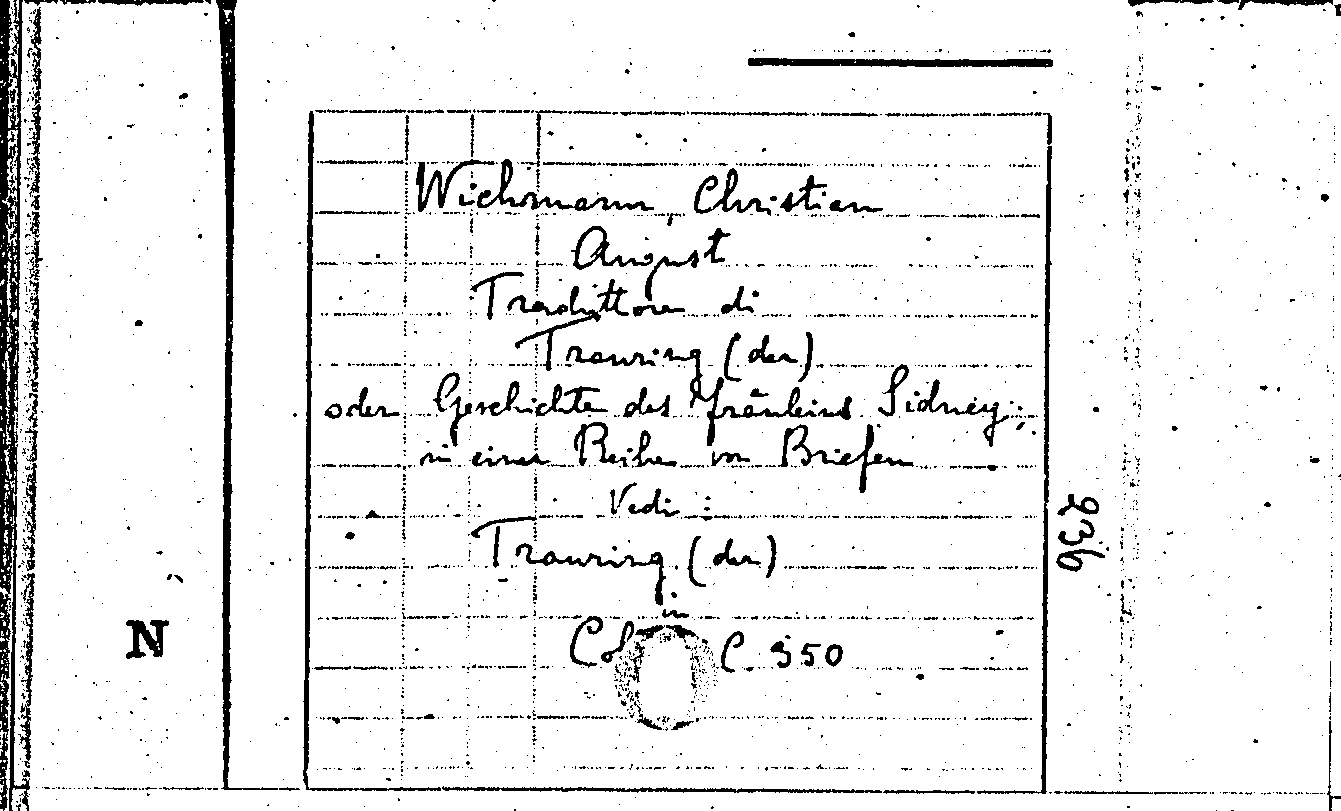 Wichmann, Christian
August
Traduttore di
Trauring (der)
oder Geschichte des Fräuleins Sidney;
in einer Reihe von Briefen
Vedi:
Trauring (der)
in
C. 350
236
N